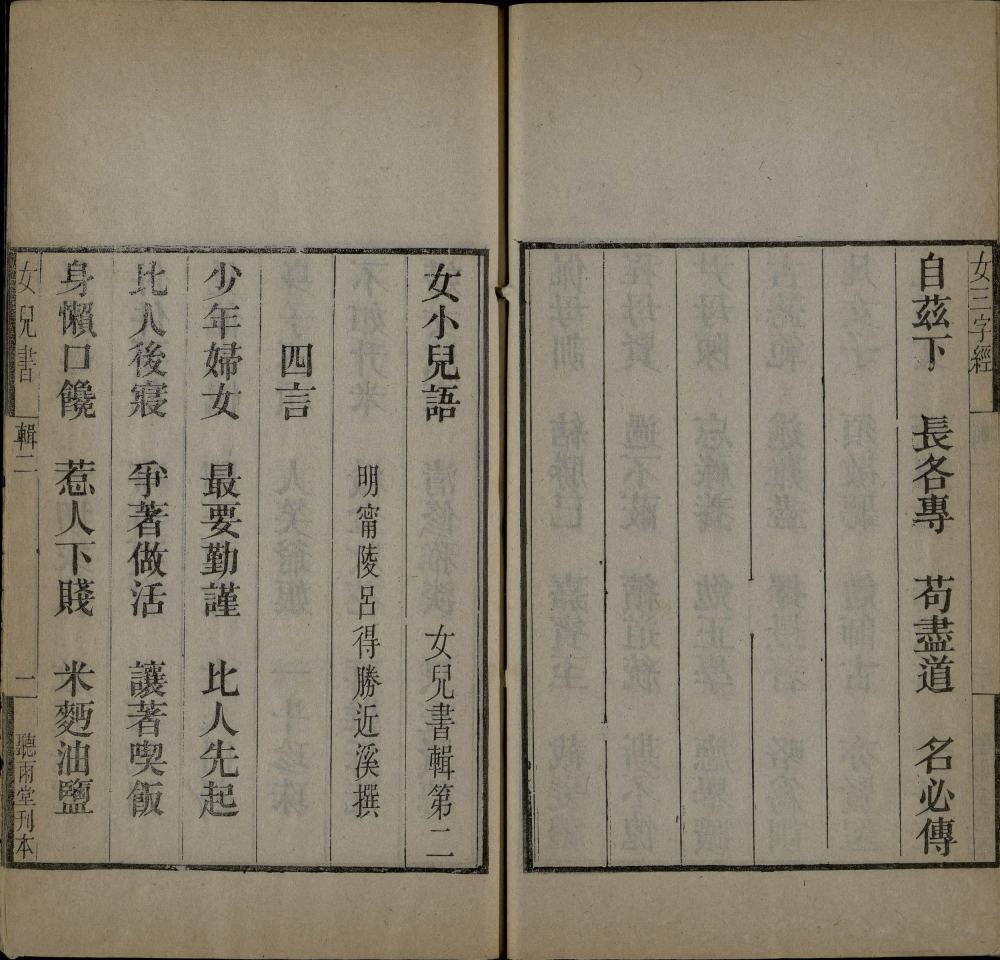 女三字經
自茲下　長各專　苟盡道　名必傳
女小兒語　女兒書輯第二
明甯陵呂得勝近溪撰
四言
少年婦女　最要勤謹　比人先起
比人後寢　爭著做活　讓著喫飯
身懶口饞　惹人下賤　米麪油鹽
女兒書　輯二　二　聽雨堂刊本